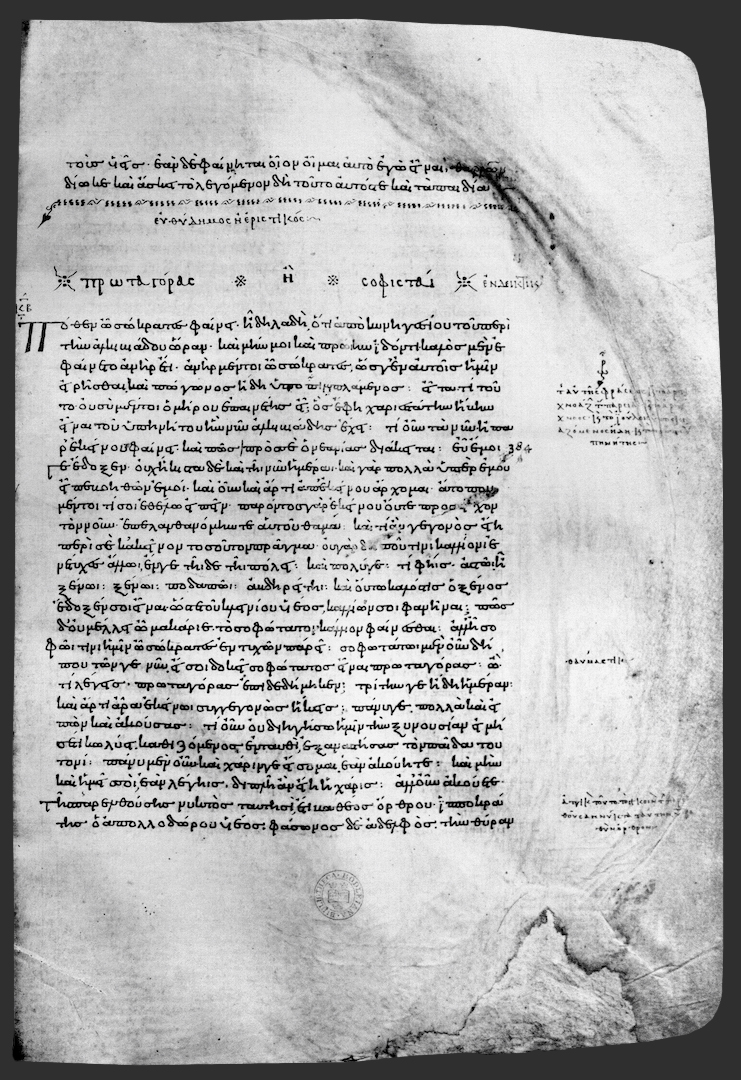 τοὺς ὑεῖς· ἐὰν δὲ φαίνηται οἷον οἶμαι αὐτὸ ἐγὼ εἶναι, θαρρῶν
δίωκε καὶ ἄσκει τὸ λεγόμενον δὴ τοῦτο αὐτός τε καὶ τὰ παιδία
εὐθύδημος ἢ ἐριστικός
πρωταγόρας ἢ σοφισταί ἐνδεικτικός
Πόθεν ὦ σώκρατες φαίνει· ἢ δηλαδὴ ὅτι ἀπὸ κυνηγεσίου τοῦ περὶ
τὴν ἀλκιβιάδου ὥραν· καὶ μήν μοι καὶ πρώην ἰδόντι καλὸς μὲν ἐ
φαίνετο ἀνὴρ ἔτι· ἀνὴρ μέντοι ὦ σώκρατες, ὥς γ' ἐν αὐτοῖς ἡμῖν
εἰρῆσθαι, καὶ πώγωνος ἤδη ὑποπιμπλάμενος: εἶτα τί τοῦ
το· οὐ σὺ μέντοι ὁμήρου ἐπαινέτης εἶ; ὃς ἔφη χαριεστάτην ἥβην
εἶναι τοῦ ὑπηνήτου ἣν νῦν ἀλκιβιάδης ἔχει: τί οὖν τὰ νῦν; ἦ πα
ρ' ἐκείνου φαίνει· καὶ πῶς πρός σε ὁ νεανίας διάκειται: εὖ ἔμοι
γε ἔδοξεν· οὐχ ἥκιστα δὲ καὶ τῇ νῦν ἡμέρᾳ· καὶ γὰρ πολλὰ ὑπὲρ ἐμοῦ
εἶπε βοηθῶν ἐμοί· καὶ οὖν καὶ ἄρτι ἀπ' ἐκείνου ἔρχομαι· ἄτοπον
μέντοι τί σοι ἐθέλω εἰπεῖν· παρόντος γὰρ ἐκείνου οὔτε προσεῖχον
τὸν νοῦν· ἐπελανθανόμην τε αὐτοῦ θαμά: καὶ τί ἂν γεγονὸς εἴη
περὶ σὲ κἀκεῖνον τοσοῦτον πρᾶγμα· οὐ γὰρ δήπου τινὶ καλλίονι ἐ
νέτυχες ἄλλῳ, ἔν γε τῇδε τῇ πόλει: καὶ πολύ γε: τί φῄς· ἀστῷ ἢ
ξένῳ: ξένῳ: ποδαπῷ: ἀβδηρίτῃ: καὶ οὕτω καλός τις ὁ ξένος
ἔδοξέν σοι εἶναι ὥστε τοῦ κλεινίου ὑέος, καλλίων σοι φανῆναι: πῶς
δ' οὐ μέλλει ὦ μακάριε τὸ σοφώτατον, κάλλιον φαίνεσθαι: ἀλλ' ἦ σο
φῷ τινι ἡμῖν ὦ σώκρατες ἐντυχὼν πάρει: σοφωτάτῳ μὲν οὖν δή
που τῶν γε νῦν, εἴ σοι δοκεῖ σοφώτατος εἶναι πρωταγόρας: ὢ
τί λέγεις· πρωταγόρας ἐπιδεδήμηκεν: τρίτην γε ἤδη ἡμέραν:
καὶ ἄρτι ἄρα ἐκείνῳ συγγεγονὼς ἥκεις: πάνυ γε, πολλὰ καὶ εἰ
πὼν καὶ ἀκούσας: τί οὖν οὐ διηγήσω ἡμῖν τὴν ξυνουσίαν εἰ μή
σέ τι κωλύει, καθιζόμενος ἐνταυθί, ἐξαναστήσας τὸν παῖδα του
τονί: πάνυ μὲν οὖν καὶ χάριν γε εἴσομαι, ἐὰν ἀκούητε: καὶ μὴν
καὶ ἡμεῖς σοί, ἐὰν λέγῃς· διπλῆ ἂν εἴη ἡ χάρις: ἀλλ' οὖν ἀκούετε·
τῆς παρελθούσης νυκτὸς ταυτησί, ἔτι βαθέος ὄρθρου· ἱπποκρά
της ὁ ἀπολλοδώρου ὑέος· φάσωνος δὲ ἀδελφὸς· τὴν θύραν
384
θαυμαστικόν
BIBLIOTHECA BODLEIANA